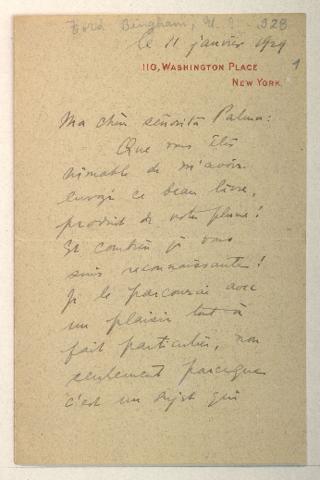 Ford Bingham, U. S. 328
le 11 janvier 1929
1
110, WASHINGTON PLACE
NEW YORK.
Ma chère señorita Palma:
Que vous êtes
aimable de m'avoir
envoyé ce beau livre,
produit de votre plume!
Et combien je vous
suis reconnaissante!
Je le parcourai avec
un plaisir tout à
fait particulier, non
seulement parceque
c'est un sujet qui